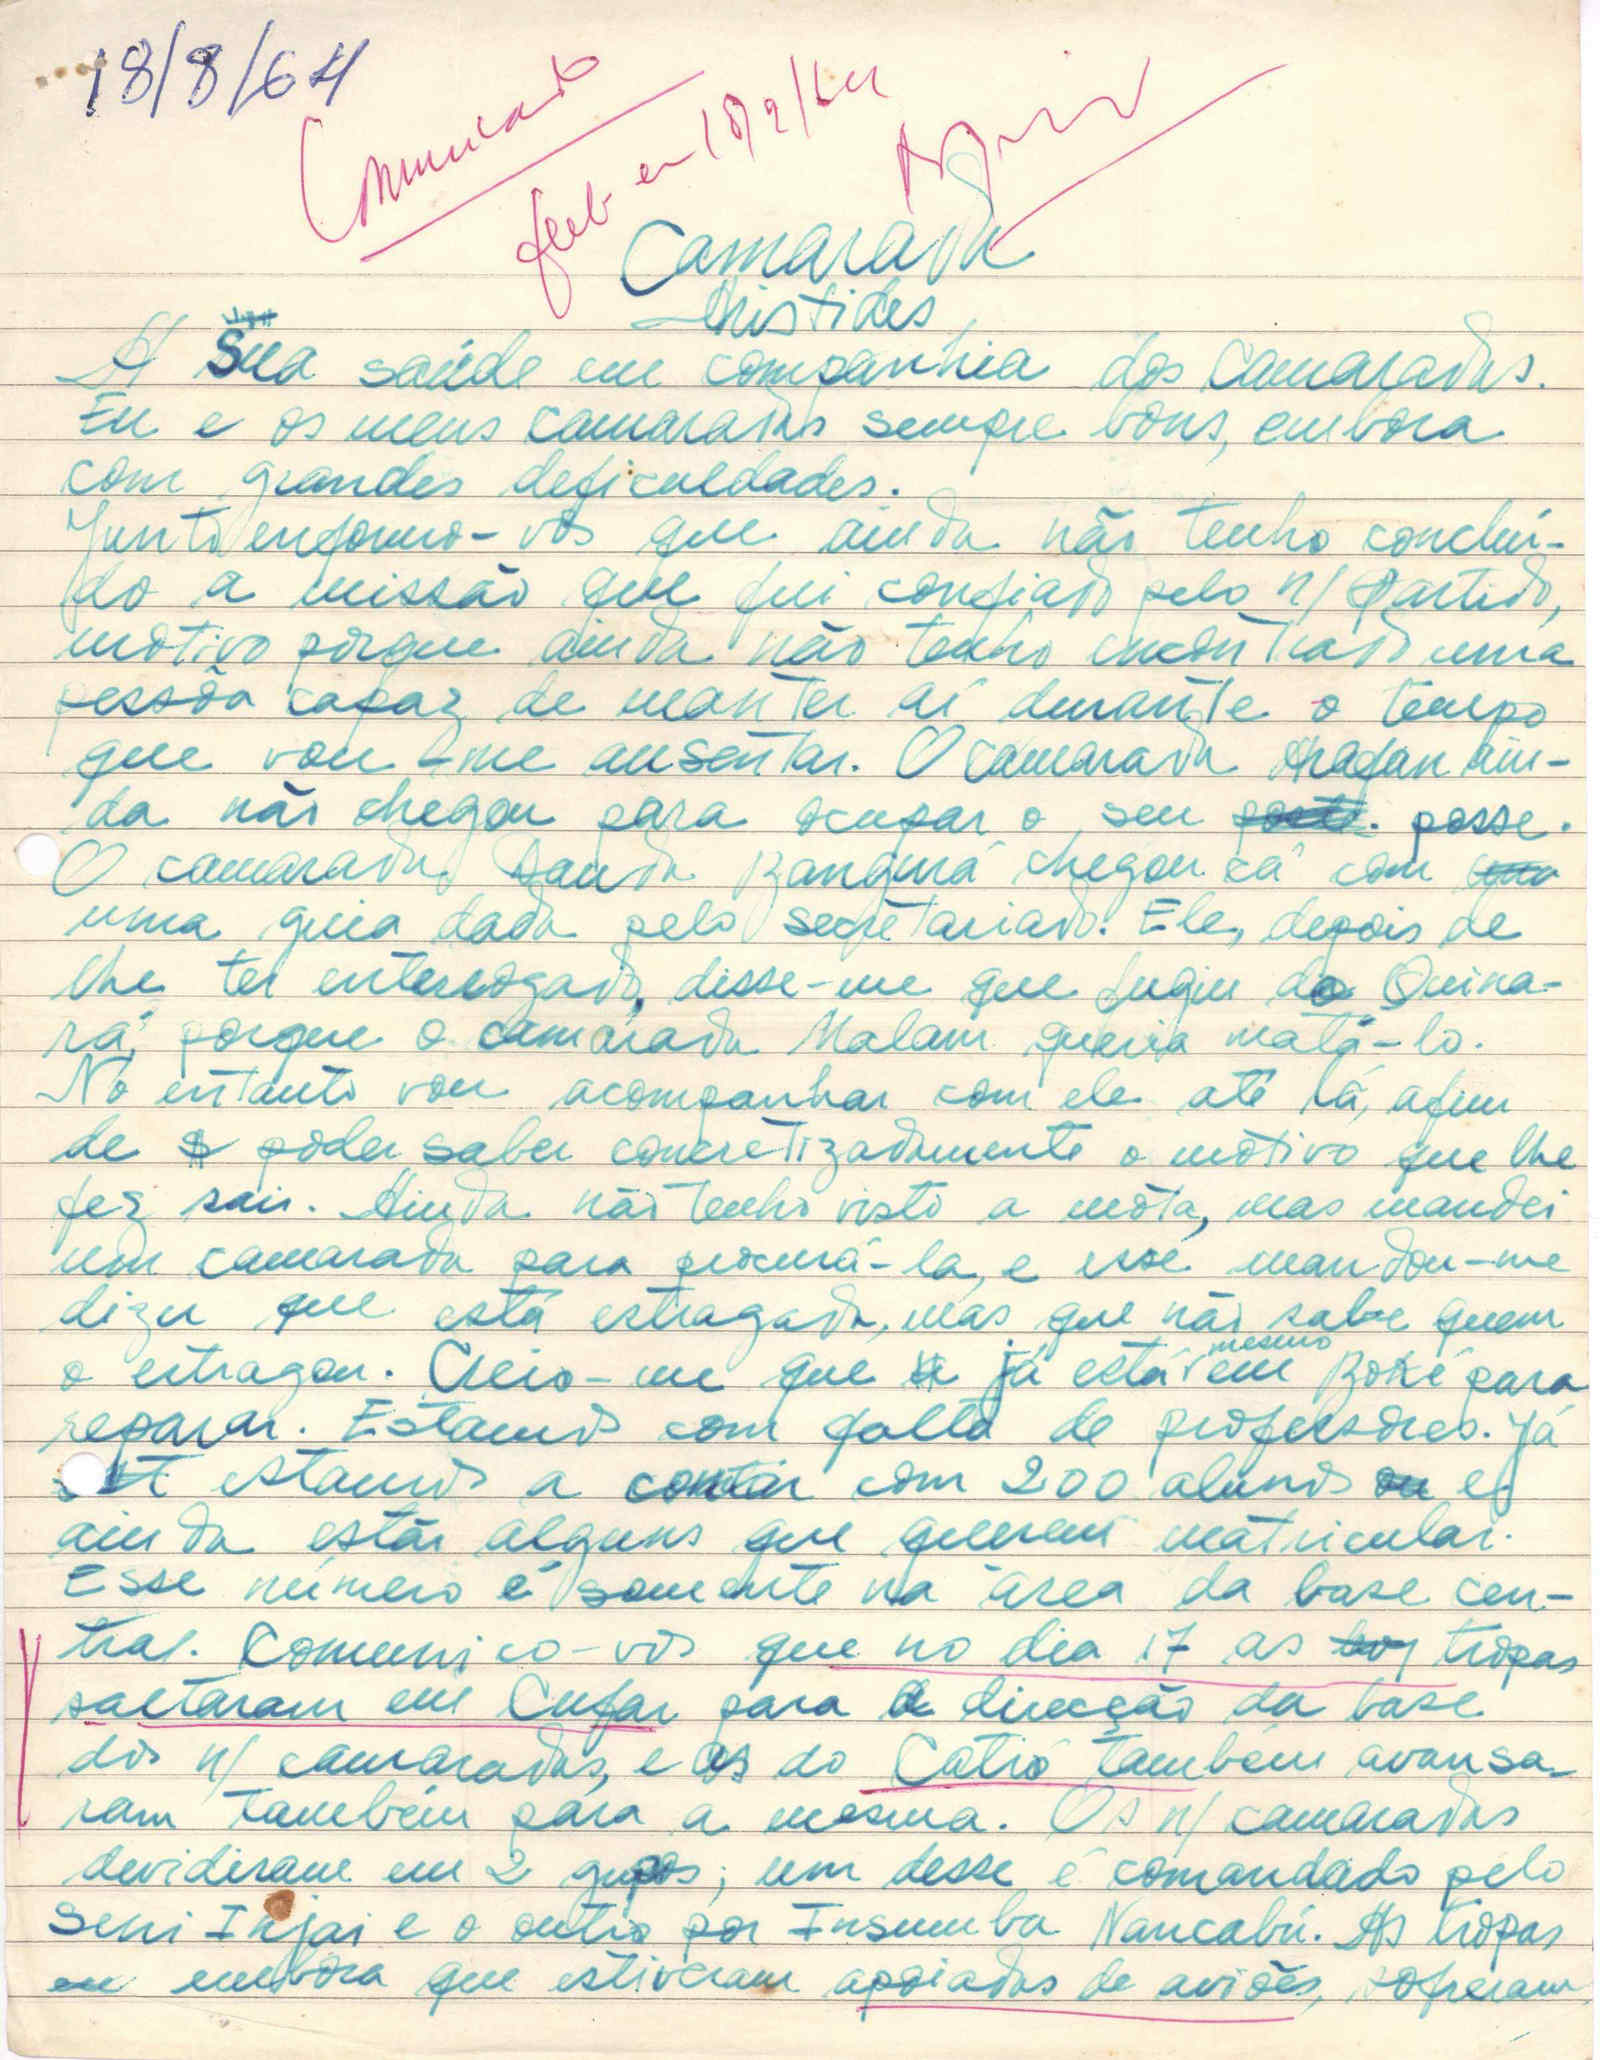 18/8/64
Comunicado
feito em 18/8/64
Camarada
Aristides
A Sua saúde em companhia dos Camaradas.
Eu e os meus camaradas sempre bons, embora
com grandes deficuldades.
Junto enformo-vos que ainda não tenho concluí-
do a missão que fui confiado pelo n/ Partido,
motivo porque ainda não tenho encontrado uma
pessôa capaz de manter aí durante o tempo
que vou-me ausentar. O camarada Arafan ain-
da não chegou para ocupar o seu posse.
O camarada Bangurá chegou cá com
uma guia dada pelo secretariado. Ele, depois de
lhe ter enterrogado, disse-me que fugiu do Quina-
rá, porque o camarada Malam queria matá-lo.
No entanto vou acompanhar com ele até lá, afim
de poder saber concretizadamente o motivo que lhe
fez sair. Ainda não tenho visto a móta, mas mandei
um camarada para procurá-la, e esse mandou-me
dizer que está estragada, mas que não sabe quem
o estragou. Creio-me que já está mesmo em Boké para
reparar. Estamos com falta de professores. Já
estamos a contar com 200 alunos e
ainda estão alguns que querem matricular.
Esse número é somente na área da base cen-
tral. Comunico-vos que no dia 17 as tropas
saltaram em Cufar para a direcção da base
dos n/ camaradas, e as do Catió também avansa-
ram também para a mesma. Os n/ camaradas
devidiram em 2 grupos; um desse é comandado pelo
Seni Injai e o outro por Insumba Nancabú. As tropas
embora que estiveram apoiadas de aviões, sofreram